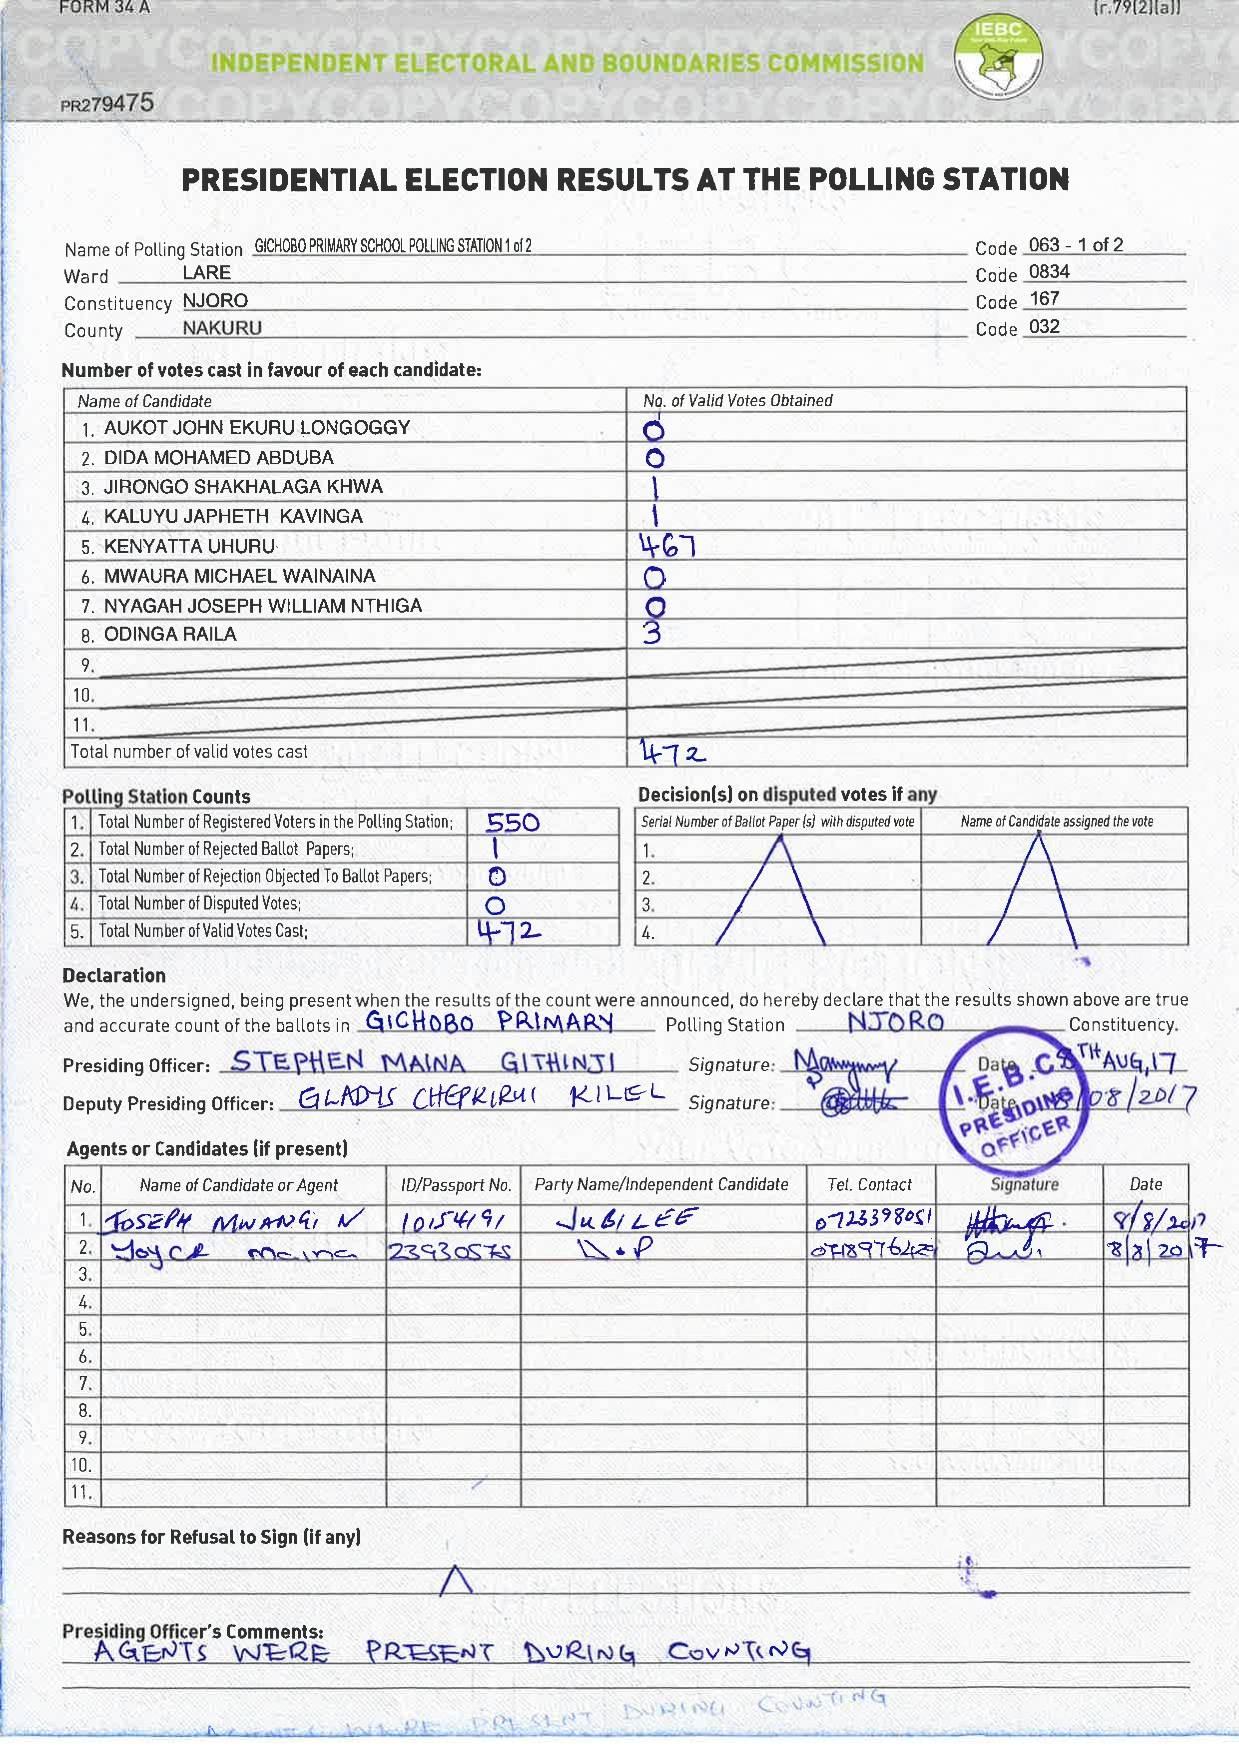 FORM 34 A (r.79(2)(a))
INDEPENDENT ELECTORAL AND BOUNDARIES COMMISSION IEBC
PR279475
PRESIDENTIAL ELECTION RESULTS AT THE POLLING STATION
Name of Polling Station GICHOBO PRIMARY SCHOOL POLLING STATION 1 of 2 Code 063 - 1 of 2
Ward LARE Code 0834
Constituency NJORO Code 167
County NAKURU Code 032
Number of votes cast in favour of each candidate:
Name of Candidate No. of Valid Votes Obtained
1. AUKOT JOHN EKURU LONGOGGY 0
2. DIDA MOHAMED ABDUBA 0
3. JIRONGO SHAKHALAGA KHWA 1
4. KALUYU JAPHETH KAVINGA 1
5. KENYATTA UHURU 467
6. MWAURA MICHAEL WAINAINA 0
7. NYAGAH JOSEPH WILLIAM NTHIGA 0
8. ODINGA RAILA 3
9.
10.
11.
Total number of valid votes cast 472
Polling Station Counts Decision(s) on disputed votes if any
1. Total Number of Registered Voters in the Polling Station; 550 Serial Number of Ballot Paper (s) with disputed vote Name of Candidate assigned the vote
2. Total Number of Rejected Ballot Papers; 1 1.
3. Total Number of Rejection Objected To Ballot Papers; 0 2.
4. Total Number of Disputed Votes; 0 3.
5. Total Number of Valid Votes Cast; 472 4.
Declaration
We, the undersigned, being present when the results of the count were announced, do hereby declare that the results shown above are true
and accurate count of the ballots in GICHOBO PRIMARY Polling Station NJORO Constituency.
Presiding Officer: STEPHEN MAINA GITHINJI Signature: Date 8TH AUG, 17
Deputy Presiding Officer: GLADYS CHEPKIRUI KILEL Signature: Date 8/08/2017
I.E.B.C PRESIDING OFFICER
Agents or Candidates (if present)
No. Name of Candidate or Agent ID/Passport No. Party Name/Independent Candidate Tel. Contact Signature Date
1. JOSEPH MWANGI N 10154191 JUBILEE 0723398051 8/8/2017
2. Joyce Maina 23930575 D.P 8/8/2017
3.
4.
5.
6.
7.
8.
9.
10.
11.
Reasons for Refusal to Sign (if any)
Presiding Officer's Comments:
AGENTS WERE PRESENT DURING COUNTING
AGENTS WERE PRESENT DURING COUNTING